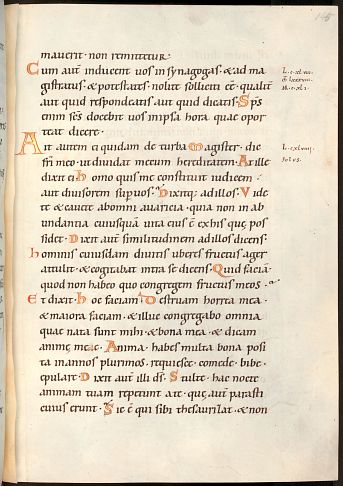 145
mauerit · non remittetur
Cum aut̄ inducent uos in synagogas · & ad ma
gistratus · & potestates · nolite solliciti eē · qualit̄
aut quid respondeatis · aut quid dicatis · Sp̄s
enim sc̄s docebit uos in ipsa hora quae opor
teat dicere ·
Ait autem ei quidam de turba · Magister · dic
fri meo · ut diuidat mecum hereditatem · At ille
dixit ei · homo quis me constituit iudicem ·
aut diuisorem sup uos · Dixitq; ad illos · Vide
te & cauete ab omni auaricia · quia non in ab
undantia cuiusquā uita eius ē · ex his quę pos
sidet · Dixit aut̄ similitudinem ad illos dicens ·
hominis cuiusdam diuitis uberes fructus ager
attulit · & cogitabat intra se dicens · Quid faciā
quod non habeo quo congregem fructus meos ·
Et dixit · hoc faciam · Destruam horrea mea ·
& maiora faciam · & illuc congregabo omnia
quae nata sunt mihi · & bona mea · & dicam
animę meae · Anima · habes multa bona posi
ta in annos plurimos · requiesce · comede · bibe ·
epulare · Dixit aut̄ illi ds̄ · Stulte · hac nocte
animam tuam repetunt a te · quę aut̄ parasti
cuius erunt · Sic ē qui sibi thesaurizat · & non